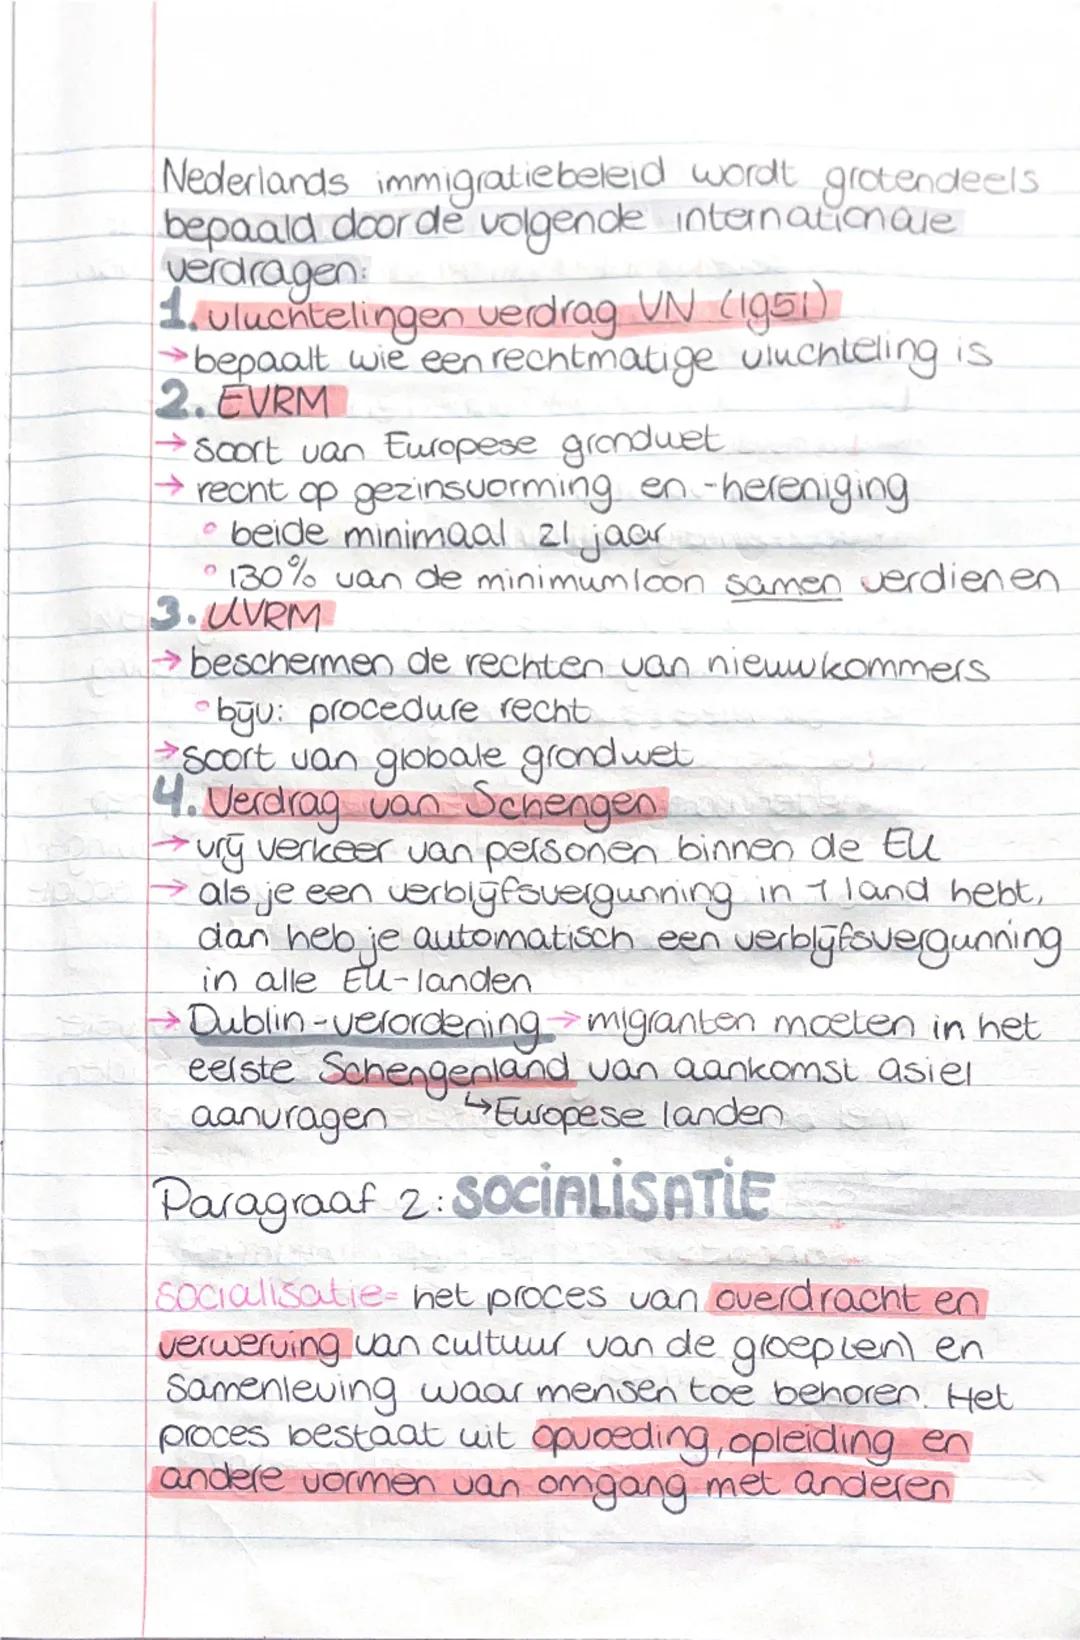 Nederlands immigratiebeleid wordt grotendeels
bepaald door de volgende internationale
verdragen:
1. vluchtelingen verdrag VN (1951)
→ bepaalt wie een rechtmatige vluchteling is
2. EVRM
→ soort van Europese grondwet
→ recht op gezinsvorming en -hereniging
• beide minimaal 21 jaar
• 130% van de minimumloon samen verdienen
3. UVRM
→ beschermen de rechten van nieuwkommers
• bijv: procedure recht
→ soort van globale grondwet
4. Verdrag van Schengen
→ vrij verkeer van personen binnen de EU
→ als je een verblijfsvergunning in 1 land hebt,
dan heb je automatisch een verblijfsvergunning
in alle EU-landen
→ Dublin-verordening → migranten moeten in het
eerste Schengenland van aankomst asiel
aanvragen ↳ Europese landen
Paragraaf 2: SOCIALISATIE
Socialisatie= het proces van overdracht en
verwerving van cultuur van de groep(en) en
samenleving waar mensen toe behoren. Het
proces bestaat uit opvoeding, opleiding en
andere vormen van omgang met anderen